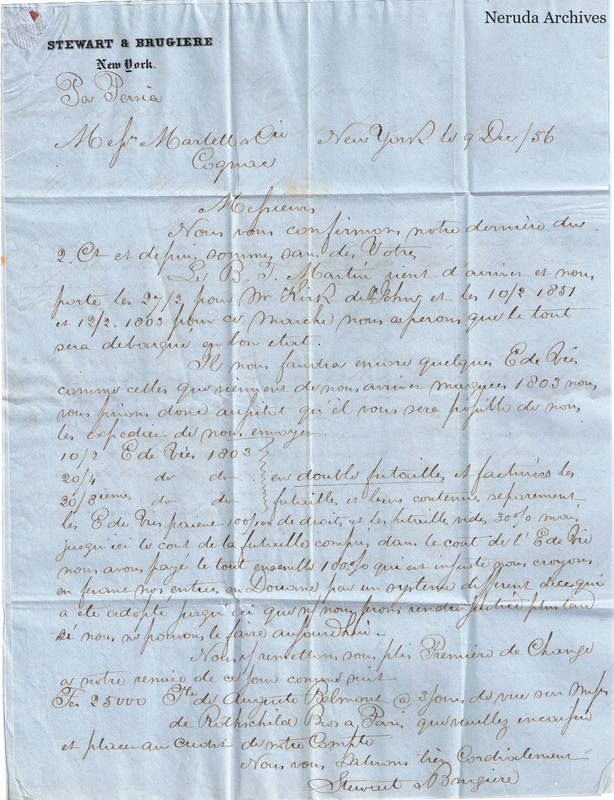 Neruda Archives
STEWART & BRUGIERE
New York.
Par Persia
Messrs Martell & Cie New York le 9 Dec /56
Cognac
Messieurs
Nous vous confirmons notre dernière du
2. Ct et depuis sommes sans des Votres
Le B. T. Martin vient d'arriver et nous
porte les 27/2 pour Mr Kirk de et les 10/2 1851
et 12/2. 1803 pour ce marche nous esperons que le tout
sera debarqué en bon etat.
Il nous faudra encore quelques E de Vies
comme celles que viennent de nous arriver marquees 1803 nous
vous prions donc aussitot qu'il vous sera possible de nous
les expedier de nous envoyer
10/2 E de Vies 1803
20/4 do do en double futailles et facturées les
20/8ièmes do do futailles et leurs contenus separement
les E de Vies paient 100%00 de droits et les futailles vides 30% mais
jusqu'ici le cout de la futaille compris dans le cout de l'E de Vie
nous avons payé le tout ensemble 100% que est injuste nous croyons
en faisant nos entrees en Douane par un systeme different de ce qui
a été adopté jusqu'ici que nous ferons rendre justice plus tard
si nous ne pouvons le faire aujourdhui.
Nous remettons sous plis Premiere de Change
a notre remise de ce jour comme suit
Fcs 25000 Tte de Auguste Belmont @ 3 jours de vue sur Messrs
de Rothschild Bros a Paris que veuillez encaisser
et placer au Credit de notre Compte
Nous vous Saluons bien Cordialement
Stewart & Brugiere